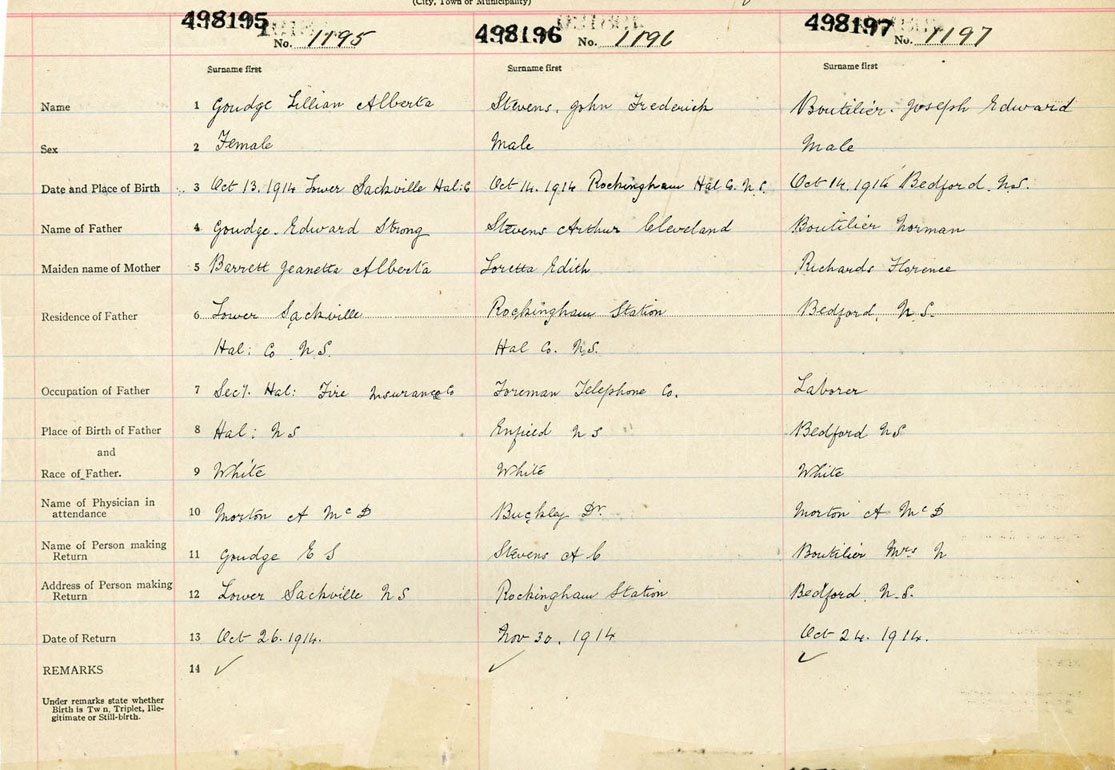 (City, Town or Municipality)
498195 No. 1195 498196 No. 1196 498197 No. 1197
Surname first Surname first Surname first
Name 1 Goudge Lillian Alberta Stevens, John Frederick Boutilier. Joseph Edward
Sex 2 Female Male Male
Date and Place of Birth 3 Oct 13. 1914 Lower Sackville Hal: Co Oct 14. 1914 Rockingham Hal Co. N.S. Oct 14. 1914 Bedford. N.S.
Name of Father 4 Goudge. Edward Strong Stevens Arthur Cleveland Boutilier Norman
Maiden name of Mother 5 Barrett Jeanetta Alberta Loretta Edith Richards Florence
Residence of Father 6 Lower Sackville Rockingham Station Bedford, N.S.
Hal: Co N.S. Hal Co. N.S.
Occupation of Father 7 Secy. Hal: Fire Insurance Co Foreman Telephone Co. Laborer
Place of Birth of Father 8 Hal: N S Enfield N S Bedford N S
and
Race of Father. 9 White White White
Name of Physician in
attendance 10 Morton A McD Buckley Dr. Morton A McD
Name of Person making
Return 11 Goudge E S Stevens A C Boutilier Mrs N
Address of Person making
Return 12 Lower Sackville N S Rockingham Station Bedford. N.S.
Date of Return 13 Oct 26. 1914. Nov 30. 1914 Oct 24. 1914.
REMARKS 14 ✓ ✓ ✓
Under remarks state whether
Birth is Twin, Triplet, Ille-
gitimate or Still-birth.